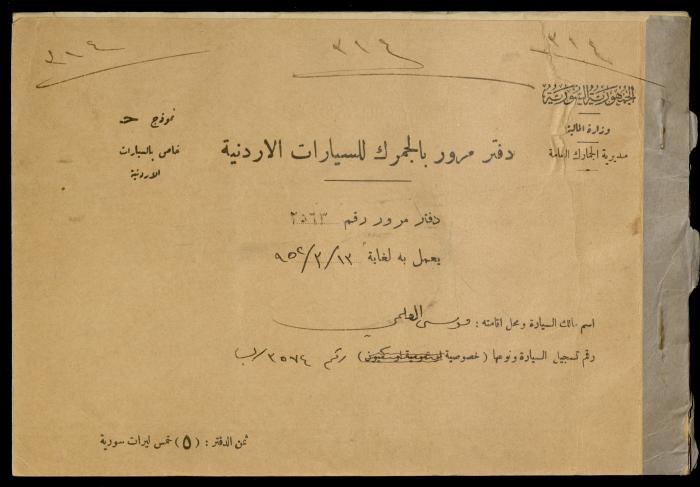 ٣١٤
٣١٤
٣١٤
الجمهورية السورية
وزارة المالية
مديرية الجمارك العامة
نموذج ح
خاص بالسيارات
الاردنية
دفتر مرور بالجمرك للسيارات الاردنية
دفتر مرور رقم ٢٥٦٣
يعمل به لغاية ١٣/٣/٩٥٢
اسم مالك السيارة ومحل اقامته : موسى العلمي
رقم تسجيل السيارة ونوعها ( خصوصية او عمومية او كميون ) رقم ٣٥٧٤/
ثمن الدفتر : ( ٥ ) خمس ليرات سورية